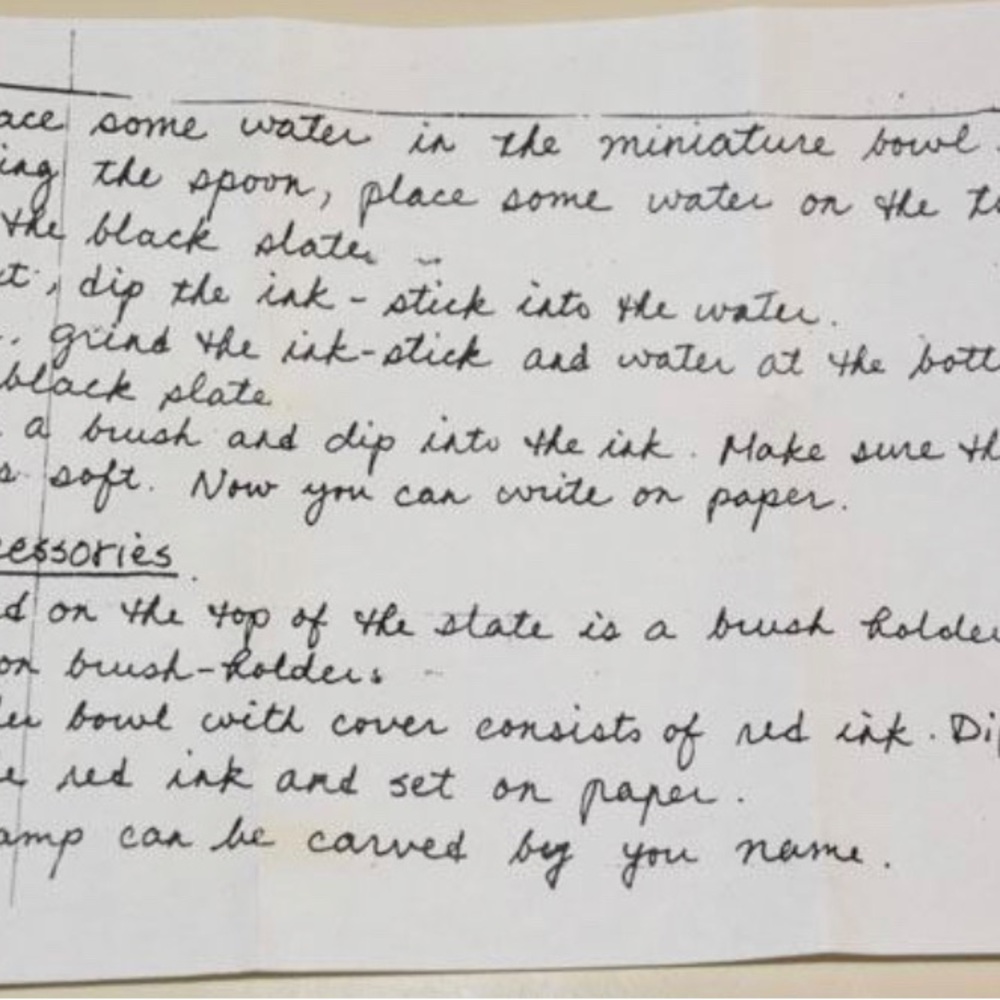 ace some water in the miniature bowl.
ing the spoon, place some water on the to
the black slate.
t, dip the ink-stick into the water.
. grind the ink-stick and water at the bott
black slate
a brush and dip into the ink. Make sure th
s soft. Now you can write on paper.
cessories
d on the top of the state is a brush holder
on brush-holder.
er bowl with cover consists of red ink. Dip
e red ink and set on paper.
amp can be carved by you name.